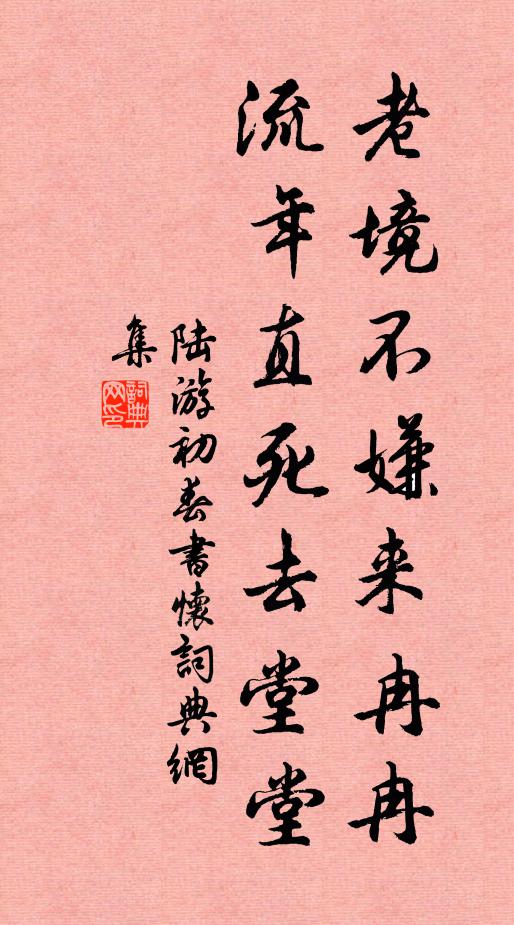 老境不嫌来冉冉
流年直死去堂堂
陆游初春書懷詞典網
集
詞典网印